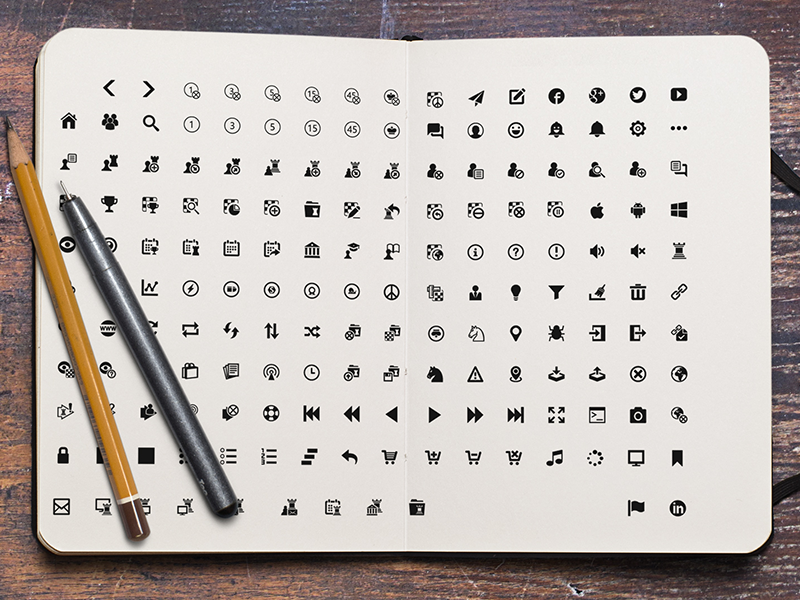 1 3 5 15 45 f g+
1 3 5 15 45
i ? !
WWW
in